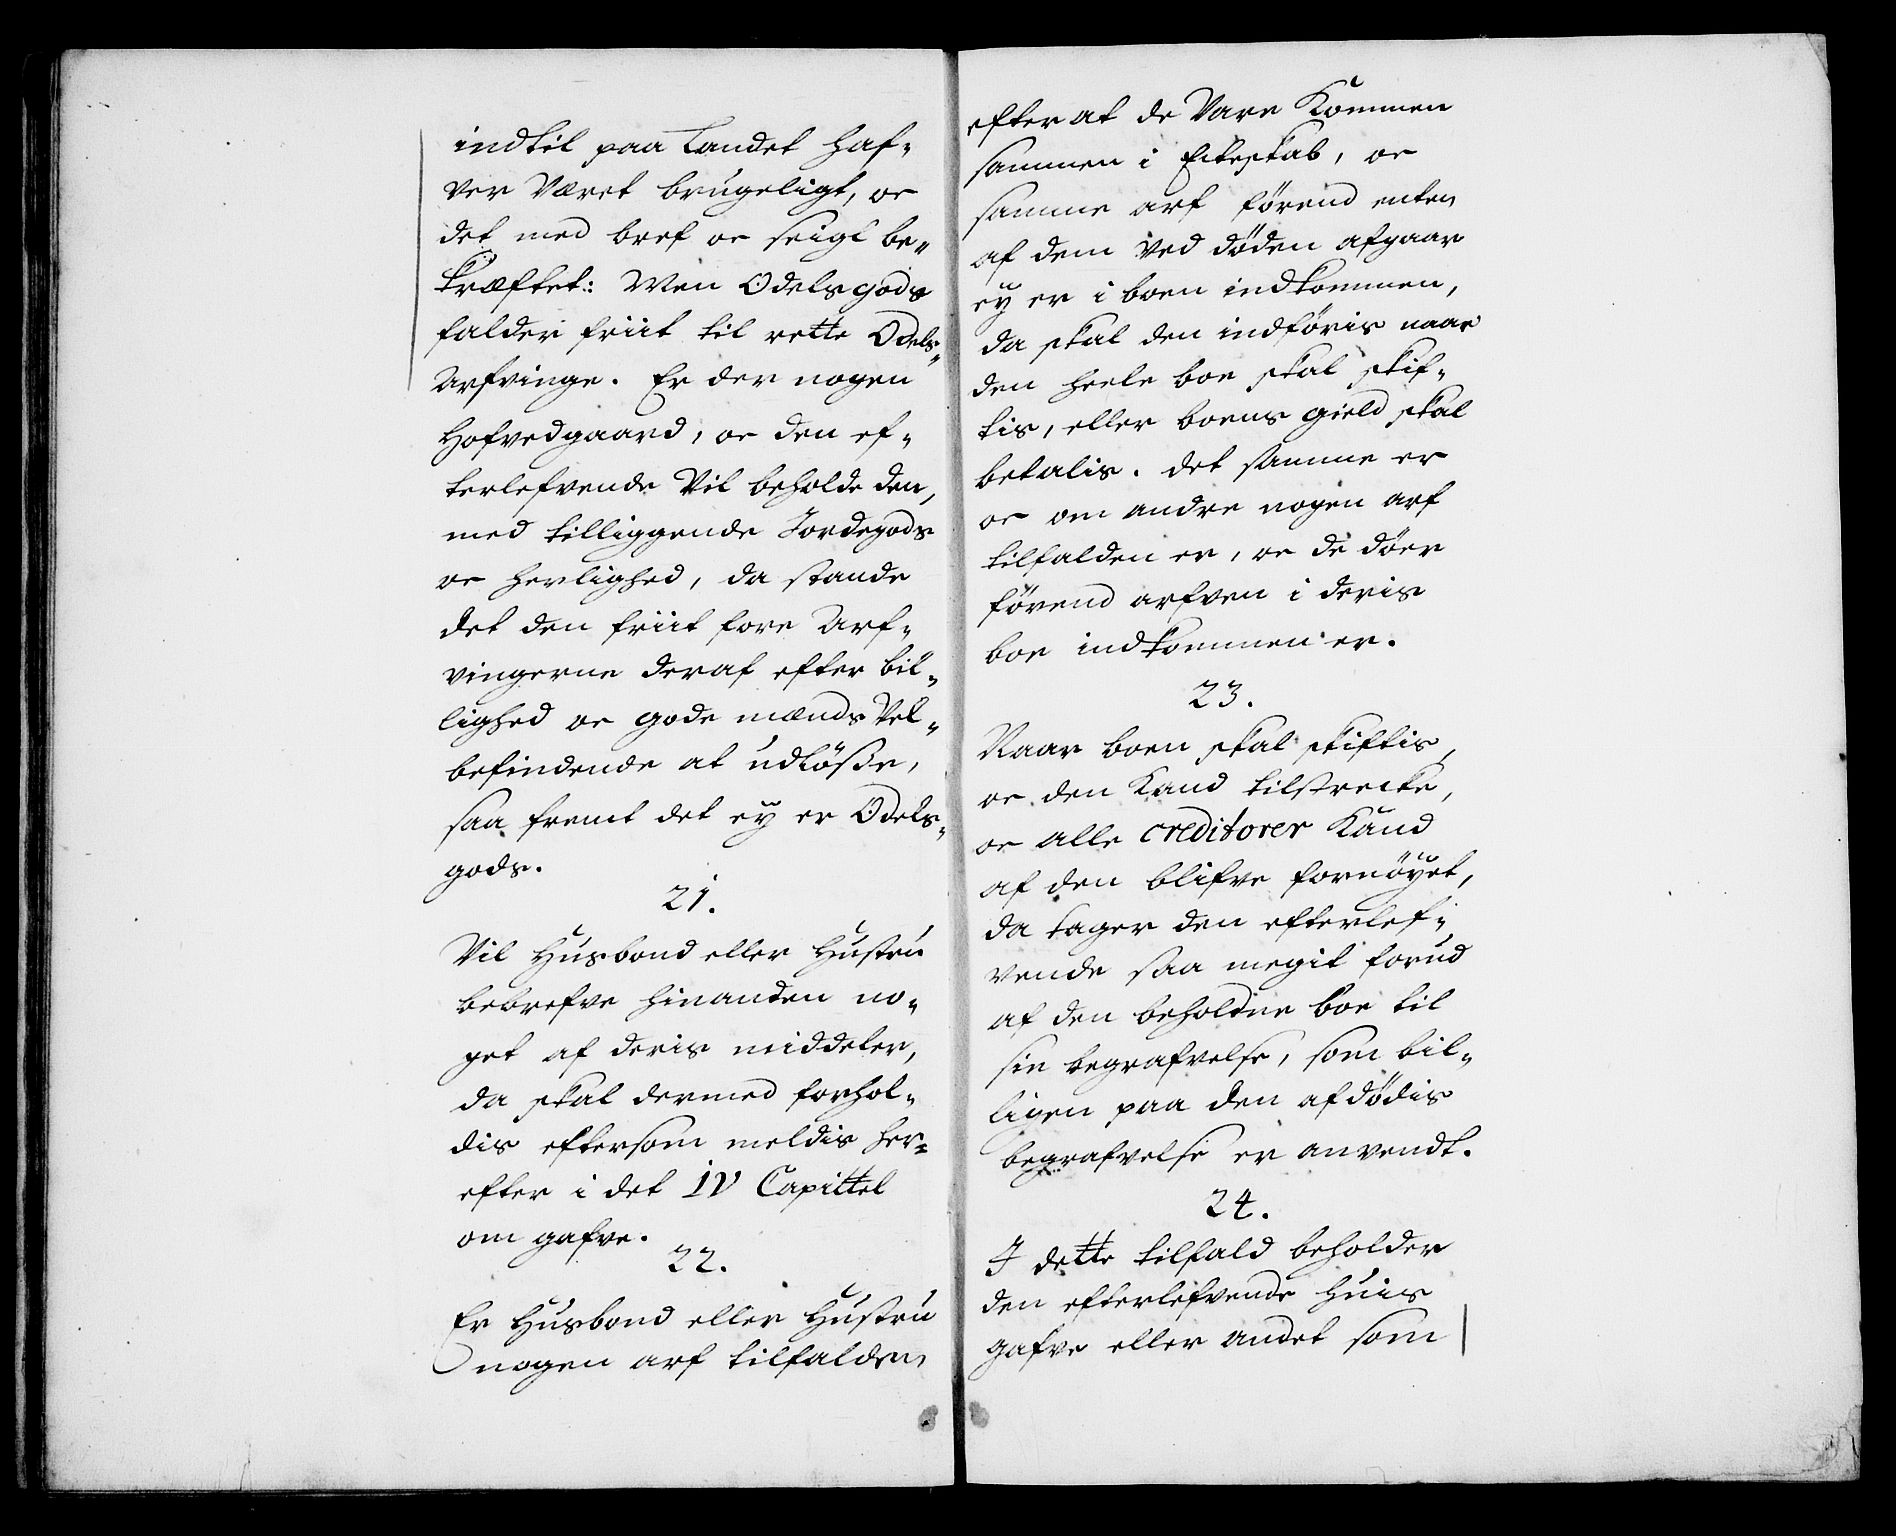 indtil paa Landet haf-
ver Været brugeligt, oc
det med bref oc seigl be-
kræftet: Men Odelsgods
falder friit til rette Odels-
Arfvinge. Er der nogen
Hofvedgaard, oc den ef-
terlefvende Vil beholde den,
med tilliggende Jordegods
oc herlighed, da stande
det den friit fore Arf-
vingerne deraf efter bil-
lighed oc gode mænds Vel-
befindende at udlöße,
saa fremt det ey er Odels-
gods.
21.
Vil Husbond eller Hustru
bebrefve hinanden no-
get af deris middeler,
da skal dermed forhol-
dis eftersom meldis her-
efter i det IV Capittel
om gafve.
22.
Er Husbond eller Hustru
nogen arf tilfalden,
efter at de Vare Kommen
sammen i Ecteskab, oc
samme arf förend enten
af dem Ved döden afgaar
ey er i boen indkommen,
da skal den indföris naar
den heele boe skal skif-
tis, eller boens gield skal
betalis. det samme er
oc om andre nogen arf
tilfalden er, oc de döer
förend arfven i deris
boe indkommen er.
23.
Naar boen skal skiftis,
oc den Kand tilstrecke,
oc alle creditorer Kand
af den blifve fornöyet,
da tager den efterlef-
vende saa megit forud
af den beholdne boe til
sin begrafvelse, som bil-
ligen paa den afdödis
begrafvelse er anvendt.
24.
I dette tilfald beholder
den efterlefvende huis
gafve eller andet som